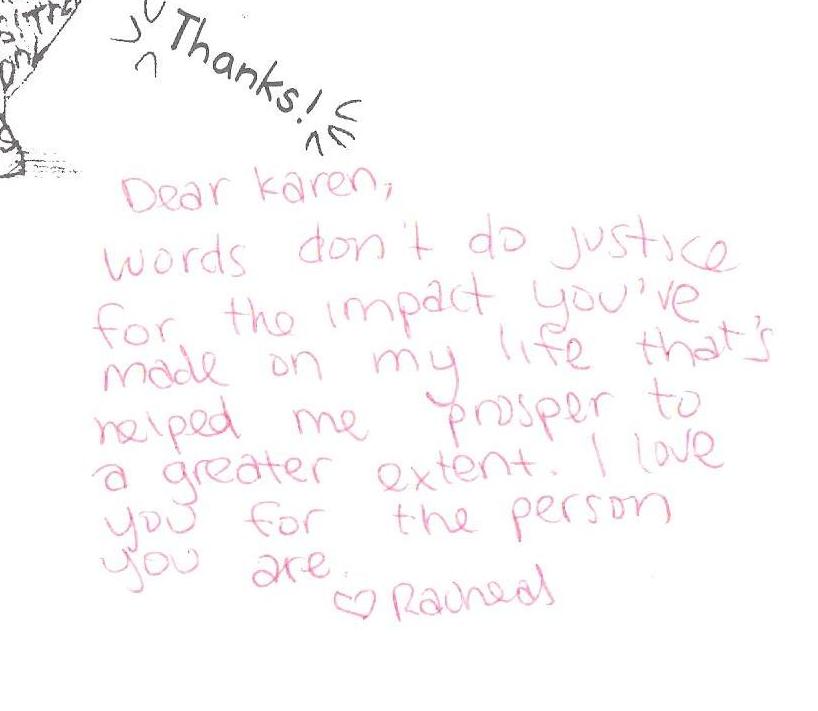 Thanks!
Dear Karen,
words don't do justice
for the impact you've
made on my life that's
helped me prosper to
a greater extent. I love
you for the person
you are.
♡ Racheal